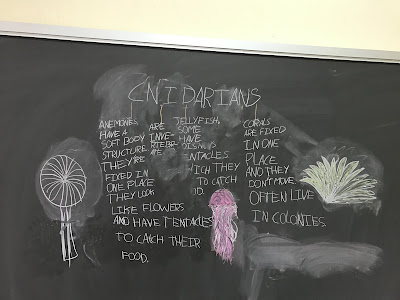 CNIDARIANS
ANEMONES
HAVE A
SOFT BODY
STRUCTURE
THEY'RE
FIXED IN
ONE PLACE
THEY LOOK
LIKE FLOWERS
AND HAVE TENTACLES
TO CATCH THEIR
FOOD.
ARE
INVE-
RTEBR-
ATE
JELLYFISH,
SOME
HAVE
THEY
TO CATCH
CORALS
ARE FIXED
IN ONE
PLACE
AND THEY
DON'T MOVE
OFTEN LIVE
IN COLONIES